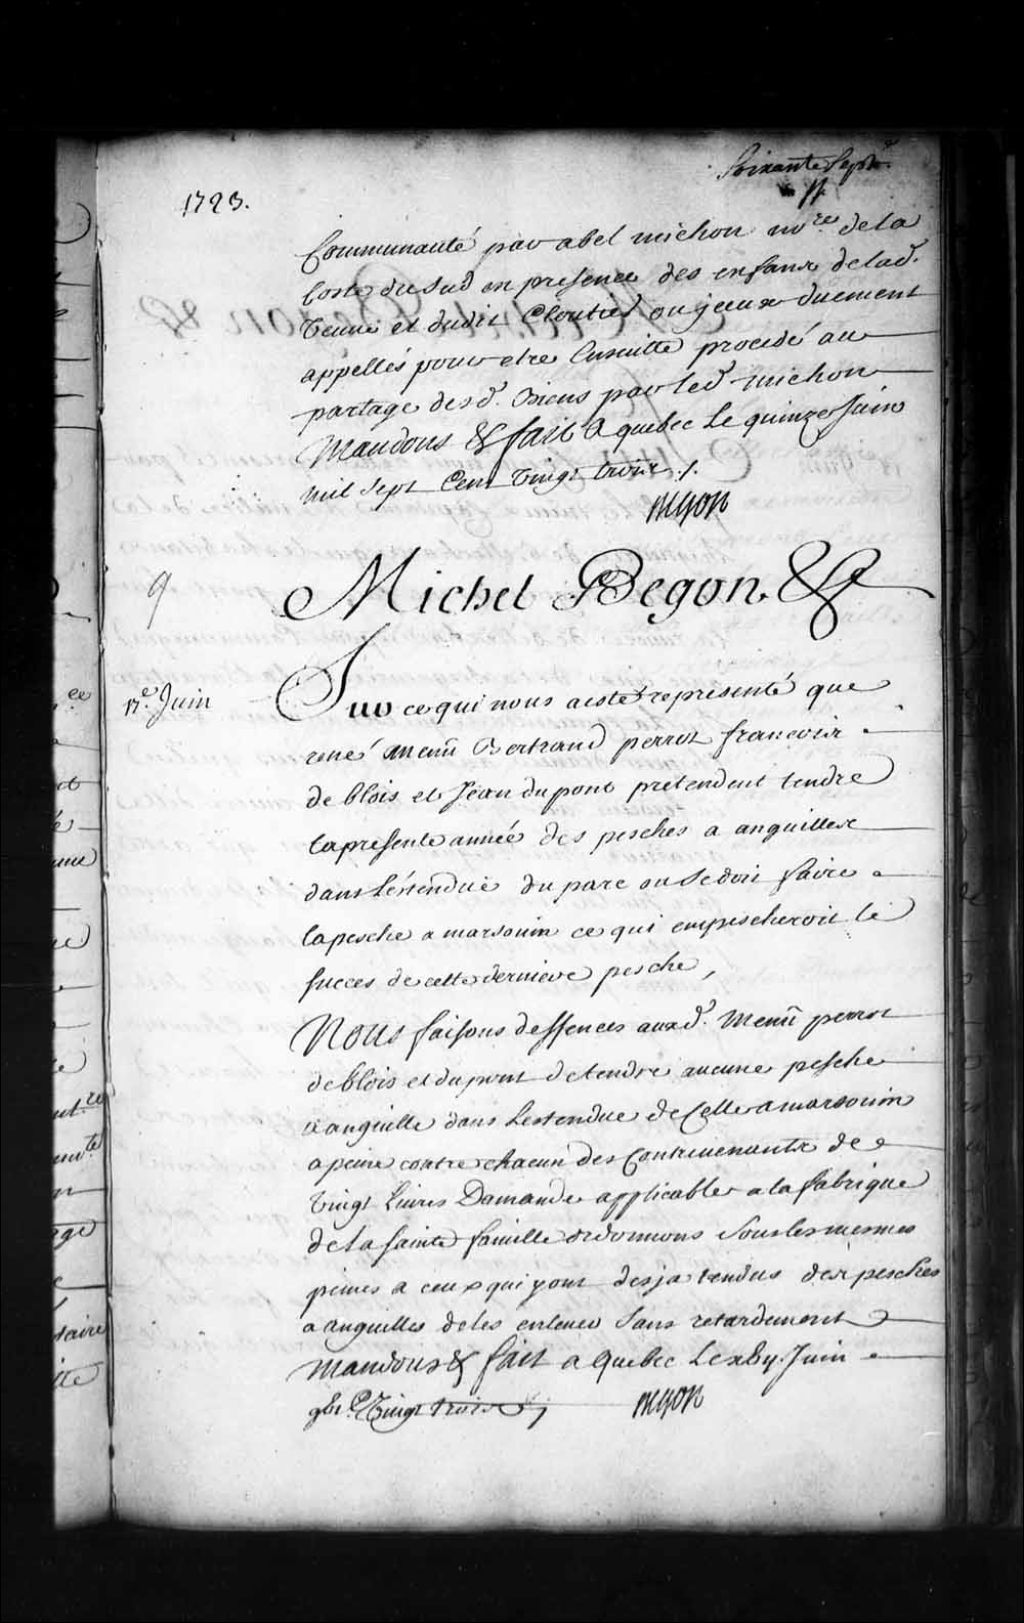 Soixante Sept.
1723.
Communauté par abel michon no.re de la
Coste du Sud en presence des enfans de lad.
Veuve et dudit Cloutier ou iceux duement
appellés pour etre Ensuitte procedé au
partage desd. Biens par led. michon
Mandons & fait a quebec Le quinze Juin
mil Sept Cent Vingt trois ./.
Begon
9
Michel Begon. &
17e. Juin
Sur ce qui nous a esté representé que
rené menü Bertrand perrot francois
de blois et Jean dupont pretendent tendre
la presente année des pesches a anguilles
dans L'étendüe du parc ou Se doit faire
la pesche a marsouin ce qui empescheroit le
succes de cette derniere pesche,
Nous faisons deffences auxd. menü perrot
de blois et dupont de tendre aucune pesche
a anguille dans Lestendue de Celle a marsouin
a peine contre chacun des Contrevenants de
Vingt Livres Damande applicable a la fabrique
de La Sainte famille ordonnons Sous les mesmes
peines a ceux qui y ont desja tendus des pesches
a anguilles de les enlever Sans retardement
Mandons & fait a Quebec Le Juin
Vingt trois
Begon